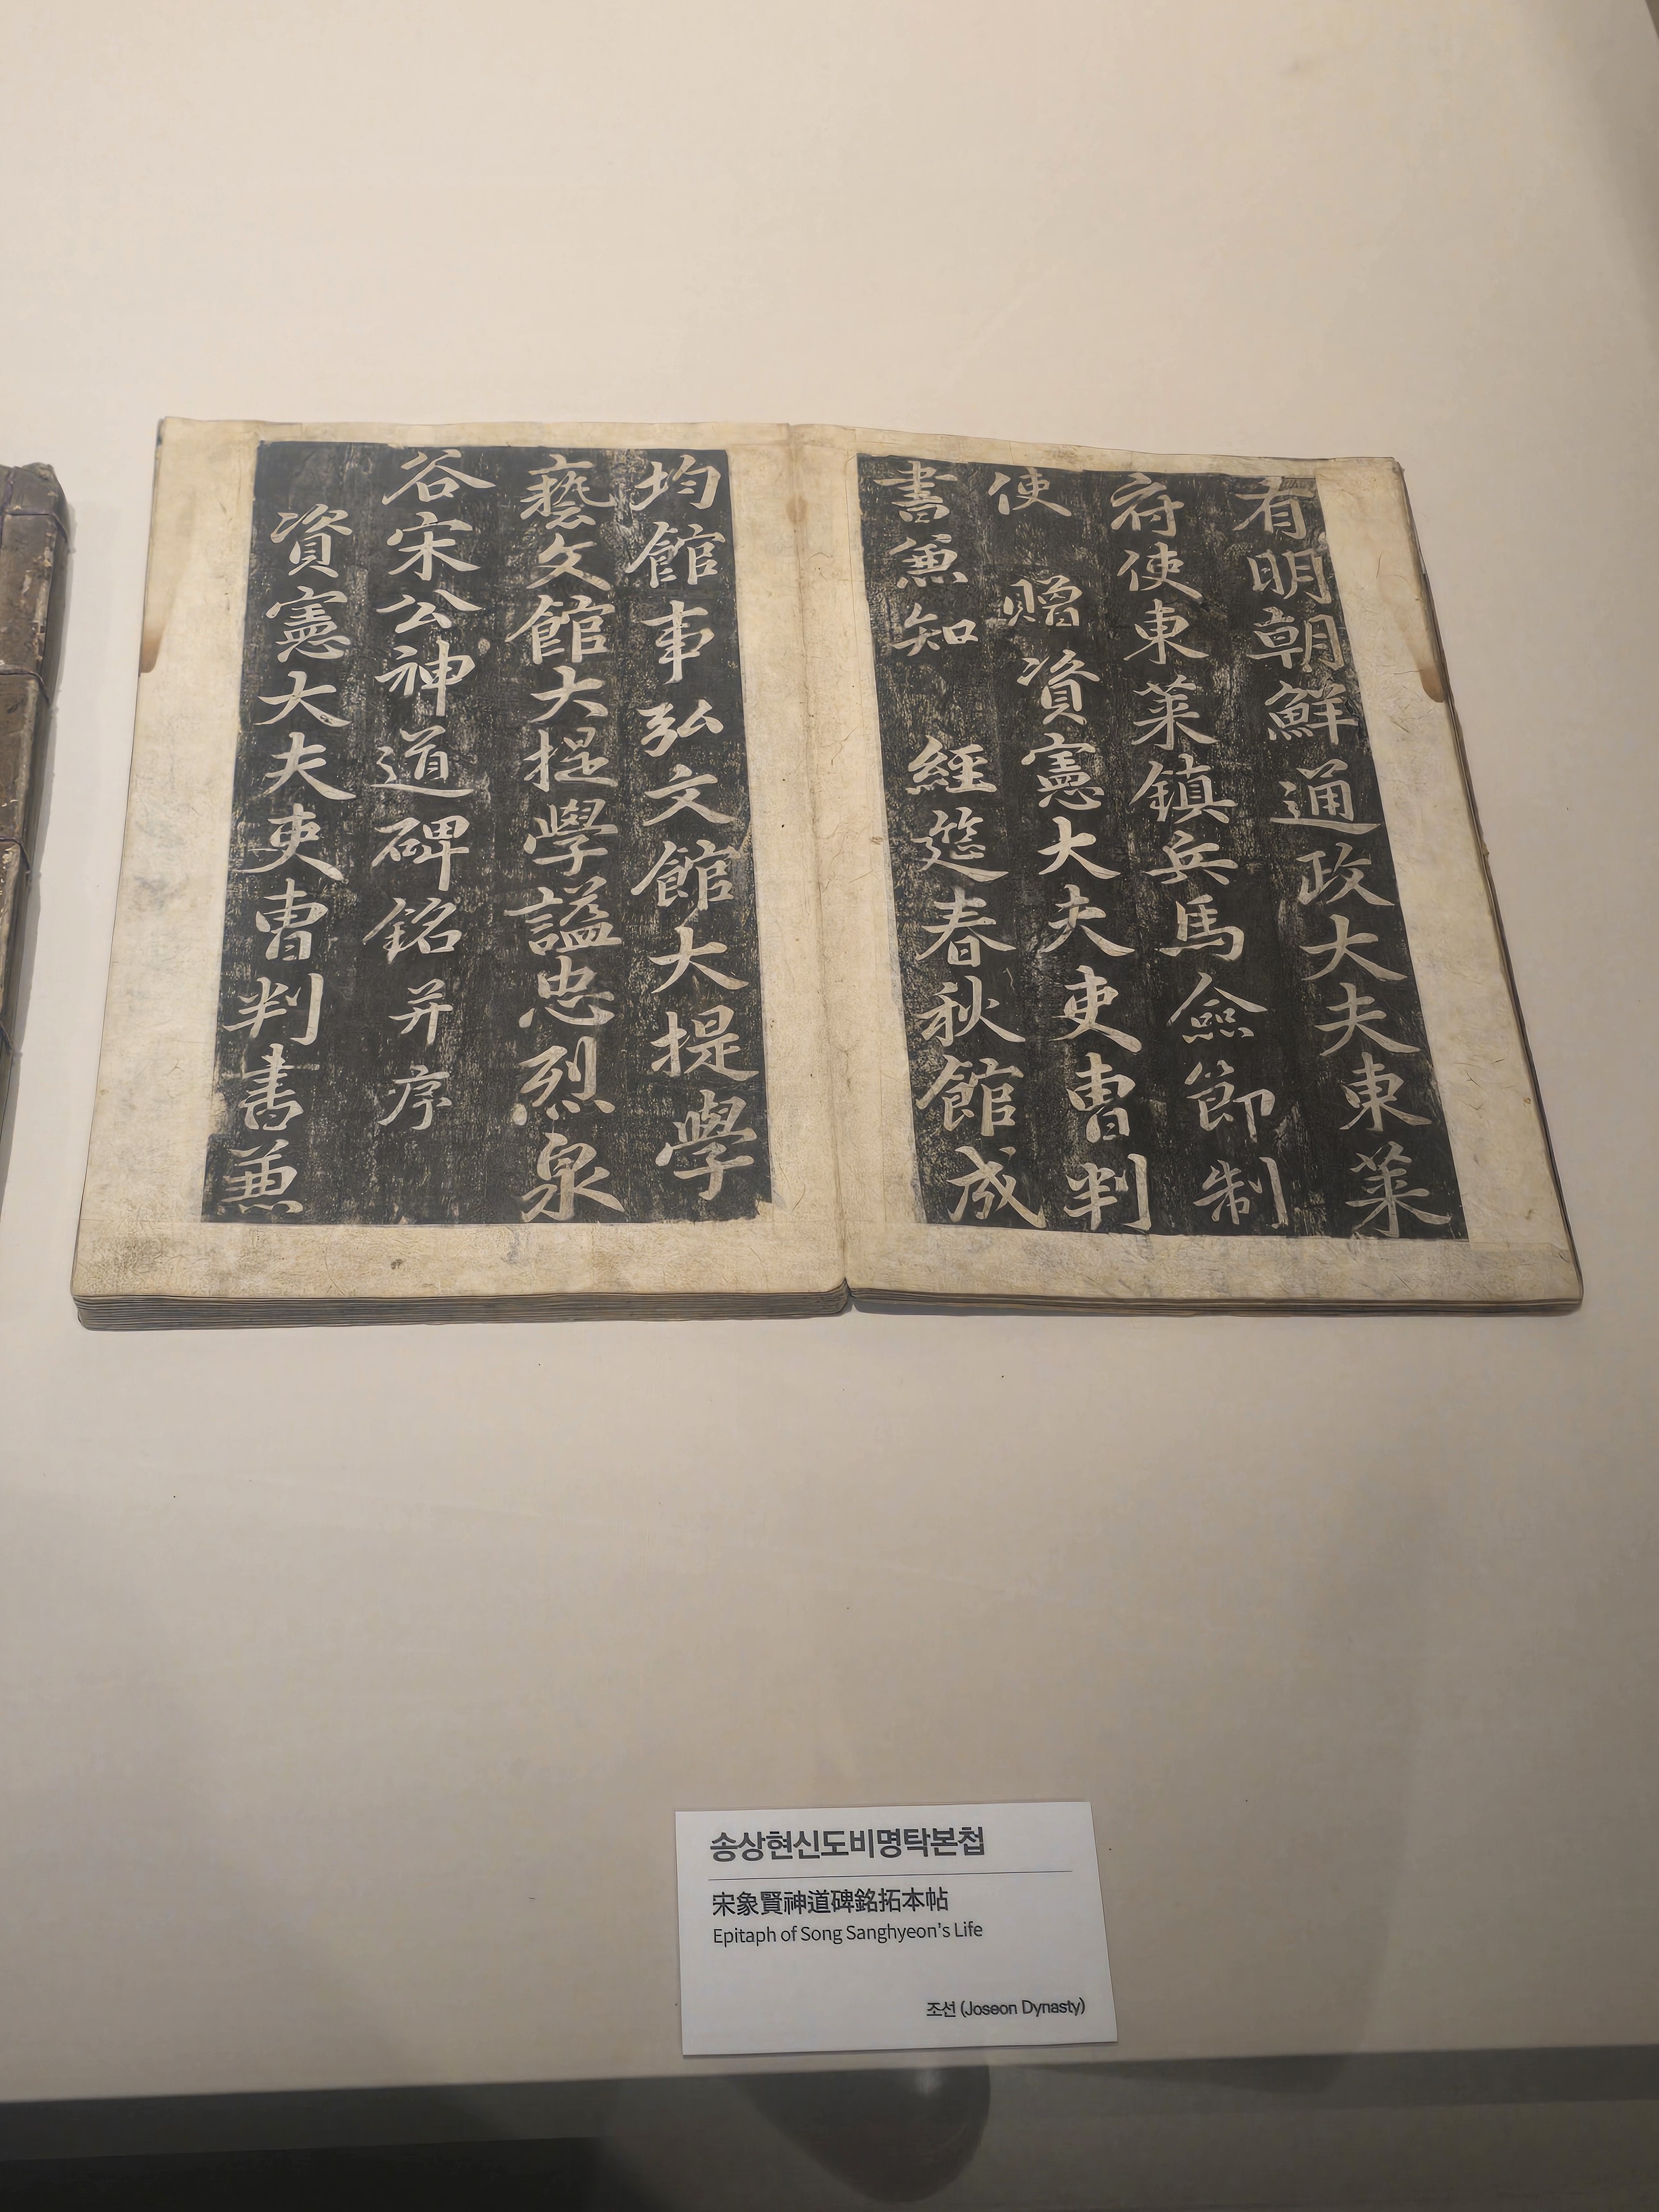 有明朝鮮通政大夫東萊
府使東萊鎮兵馬僉節制
使 贈資憲大夫吏曹判
書兼知 經筵春秋館成
均館事弘文館大提學
藝文館大提學謚忠烈泉
谷宋公神道碑銘并序
資憲大夫吏曹判書兼
송상현신도비명탁본첩
宋象賢神道碑銘拓本帖
Epitaph of Song Sanghyeon's Life
조선 (Joseon Dynasty)